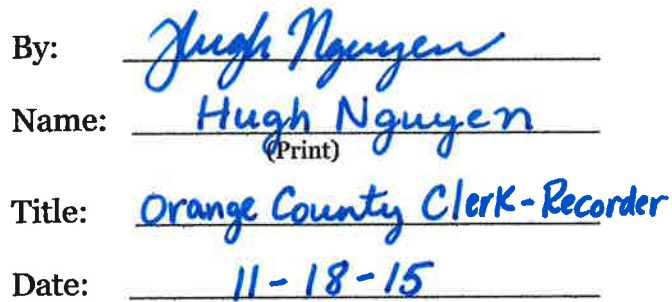 By: Hugh Nguyen
Name: Hugh Nguyen
(Print)
Title: Orange County Clerk-Recorder
Date: 11-18-15